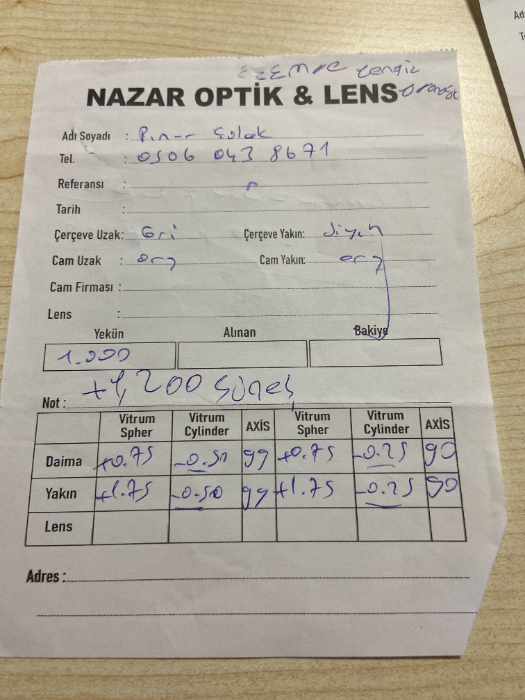 NAZAR OPTİK & LENS
Adı Soyadı : Pınar
Tel. : 0506 043 8671
Referansı :
Tarih :
Çerçeve Uzak: Gri Çerçeve Yakın: Siyah
Cam Uzak : org Cam Yakın: org
Cam Firması :
Lens :
Yekün Alınan Bakiye
1.000
Not : +1,200 Güneş
Vitrum Spher Vitrum Cylinder AXİS Vitrum Spher Vitrum Cylinder AXİS
Daima +0.75 -0.50 99 +0.75 -0.25 90
Yakın +1.75 -0.50 99 +1.75 -0.25 90
Lens
Adres :